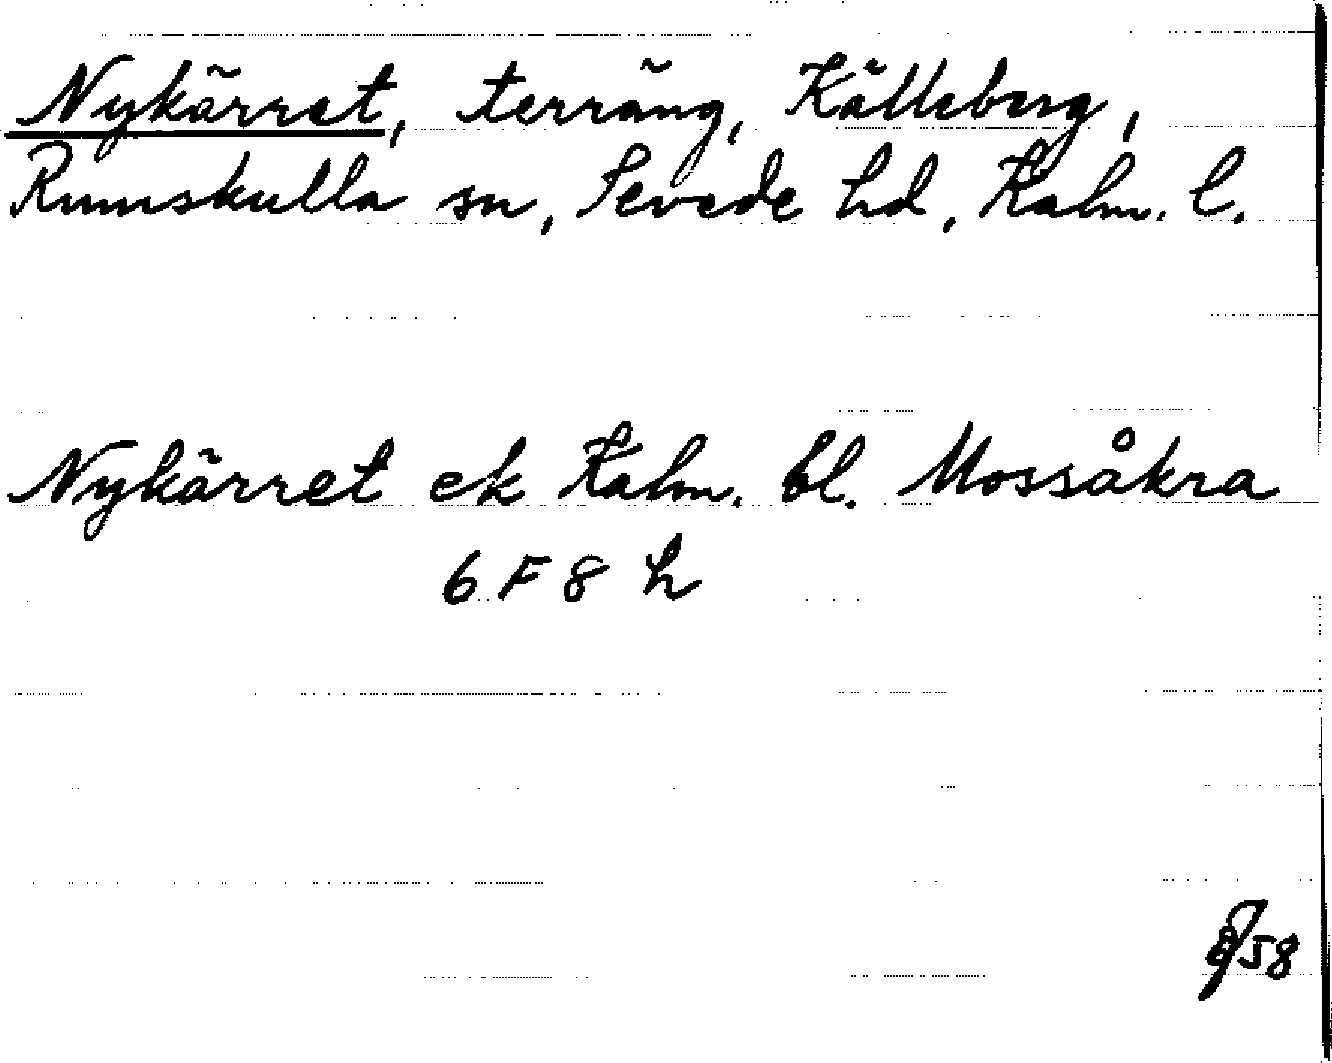 Nykärret, terräng, Källeberg,
Rumskulla sn, Sevede hd, Kalm. l.
Nykärret ek Kalm. bl. Mossåkra
6 F 8 h
58